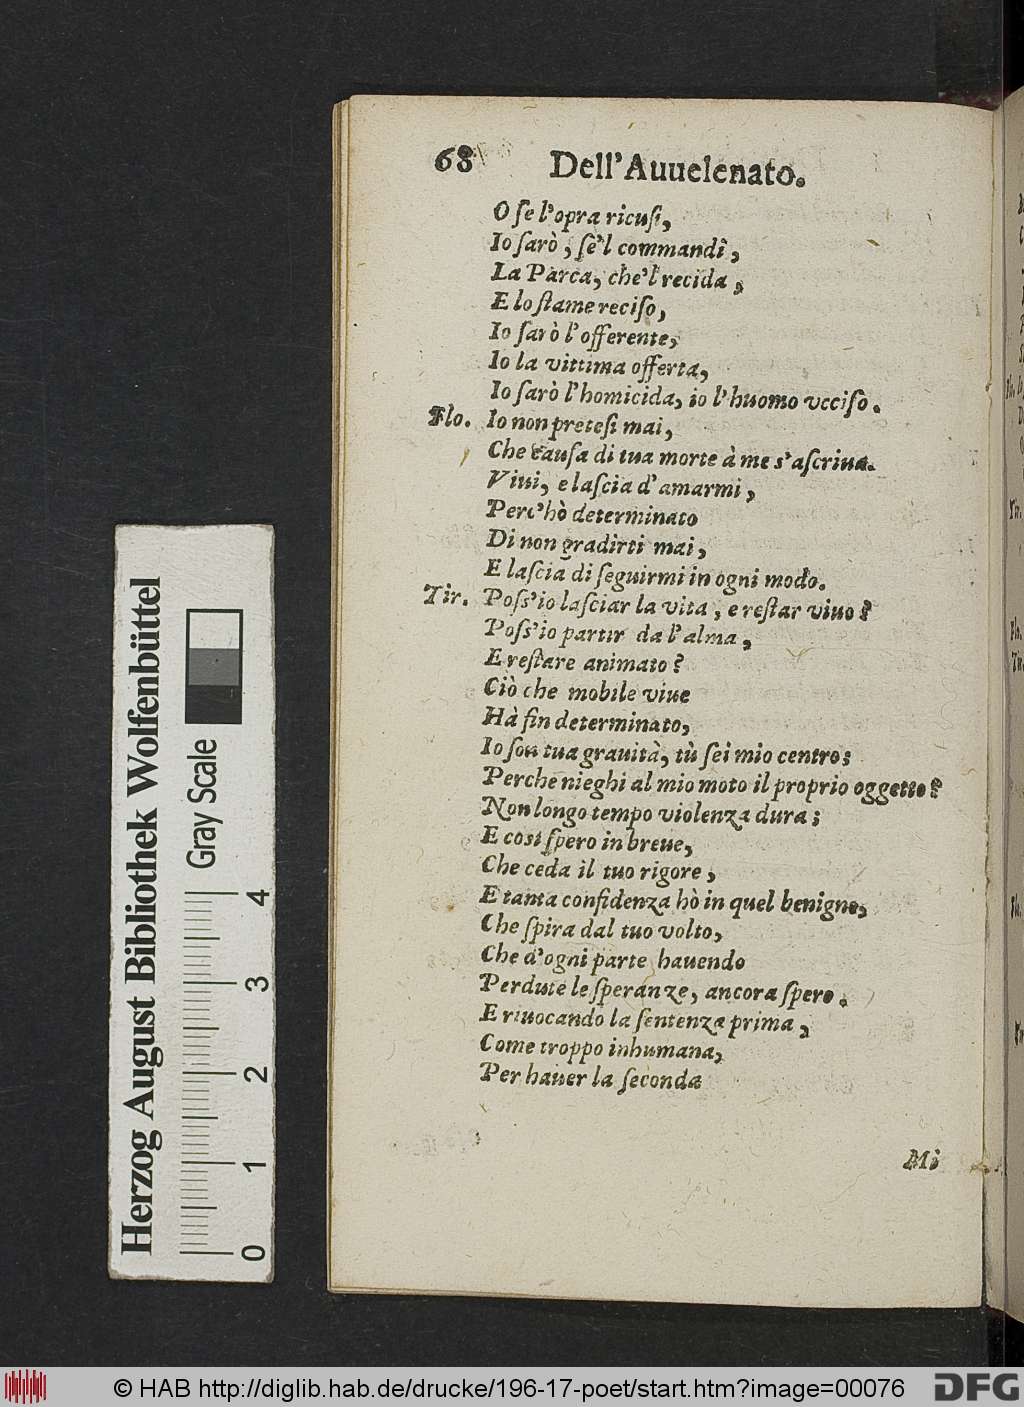 68 Dell'Auuelenato.
O ſe l'opra ricuſi,
Io ſarò, ſe'l commandi,
La Parca, che'l recida,
E lo ſtame reciſo,
Io ſarò l'offerente,
Io la vittima offerta,
Io ſarò l'homicida, io l'huomo vcciſo.
Flo. Io non preteſi mai,
Che cauſa di tua morte à me s'aſcriua.
Viui, e laſcia d'amarmi,
Perc'hò determinato
Di non gradirti mai,
E laſcia di ſeguirmi in ogni modo.
Tir. Poſs'io laſciar la vita, e reſtar viuo?
Poſs'io partir da l'alma,
E reſtare animato?
Ciò che mobile viue
Hà fin determinato,
Io ſon tua grauità, tù ſei mio centro:
Perche nieghi al mio moto il proprio oggetto?
Non longo tempo violenza dura;
E così ſpero in breue,
Che ceda il tuo rigore,
E tanta confidenza hò in quel benigno,
Che ſpira dal tuo volto,
Che d'ogni parte hauendo
Perdute le ſperanze, ancora ſpero.
E riuocando la ſentenza prima,
Come troppo inhumana,
Per hauer la ſeconda
Mi
Herzog August Bibliothek Wolfenbüttel
Gray Scale
0 1 2 3 4
© HAB http://diglib.hab.de/drucke/196-17-poet/start.htm?image=00076
DFG